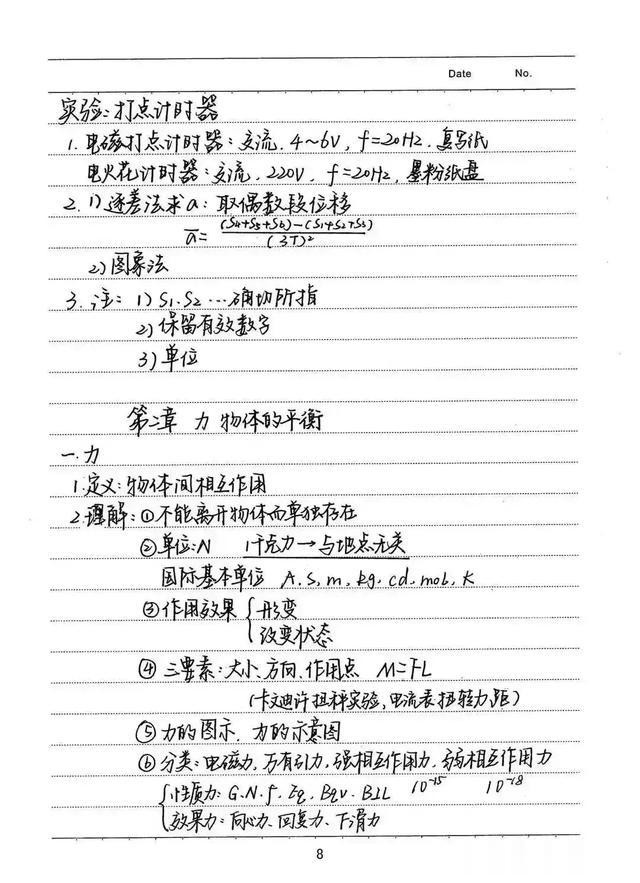 Date No.
实验:打点计时器
1. 电磁打点计时器:交流, 4~6V, f=20Hz, 复写纸
电火花计时器:交流, 220V, f=20Hz, 墨粉纸盘
2. 1) 逐差法求a: 取偶数段位移
a̅= (S4+S5+S6)-(S1+S2+S3) / (3T)²
2) 图象法
3. 注: 1) S1.S2 …确切所指
2) 保留有效数字
3) 单位
第二章 力 物体的平衡
一.力
1.定义:物体间相互作用
2.理解:①不能离开物体而单独存在
②单位:N 1千克力→与地点无关
国际基本单位 A, s, m, kg, cd, mol, K
③作用效果{形变
改变状态
④三要素:大小、方向、作用点 M=FL
(卡文迪许扭秤实验,电流表扭转力距)
⑤力的图示、力的示意图
⑥分类:电磁力,万有引力,强相互作用力,弱相互作用力
{性质力: G.N.f. Eq, Bqv. BIL 10⁻¹⁵ 10⁻¹⁸
效果力:向心力、回复力、下滑力
8